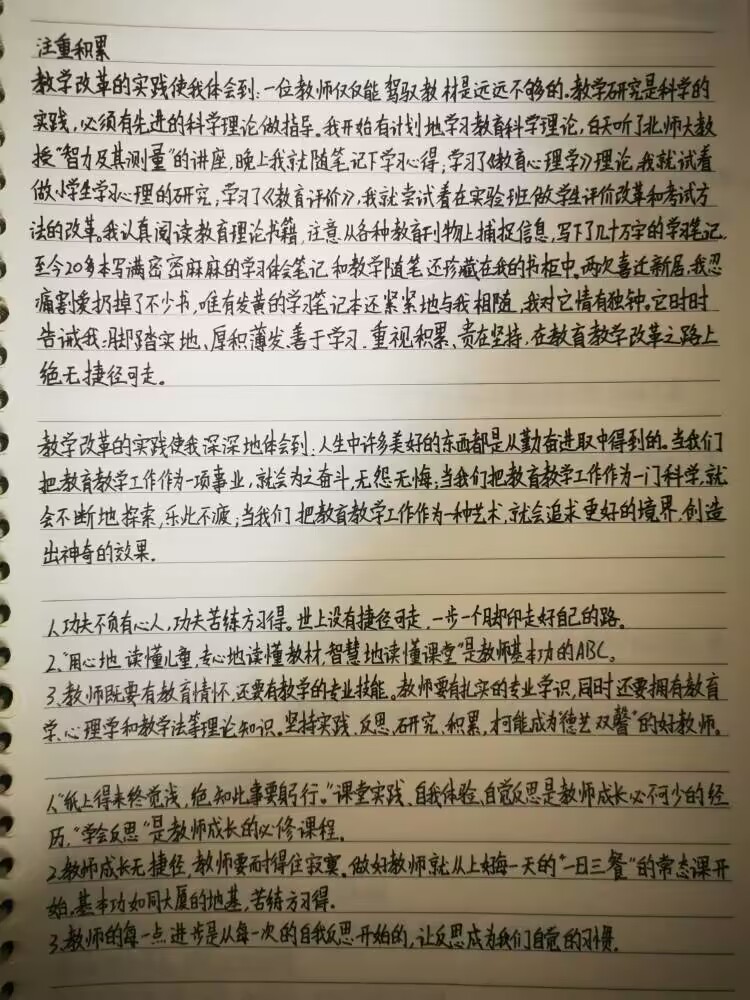 注重积累
教学改革的实践使我体会到:一位教师仅仅能驾驭教材是远远不够的.教学研究是科学的
实践,必须有先进的科学理论做指导。我开始有计划地学习教育科学理论,白天听了北师大教
授"智力及其测量"的讲座,晚上我就随笔记下学习心得;学习了《教育心理学》理论,我就试着
做小学生学习心理的研究;学习了《教育评价》,我就尝试着在实验班做学生评价改革和考试方
法的改革。我认真阅读教育理论书籍,注意从各种教育刊物上捕捉信息,写下了几十万字的学习笔记,
至今20多本写满密密麻麻的学习体会笔记和教学随笔还珍藏在我的书柜中。两次喜迁新居,我忍
痛割爱扔掉了不少书,唯有发黄的学习笔记本还紧紧地与我相随,我对它情有独钟。它时时
告诫我:脚踏实地、厚积薄发、善于学习、重视积累、贵在坚持,在教育教学改革之路上
绝无捷径可走。
教学改革的实践使我深深地体会到:人生中许多美好的东西都是从勤奋进取中得到的。当我们
把教育教学工作作为一项事业,就会为之奋斗,无怨无悔;当我们把教育教学工作作为一门科学,就
会不断地探索,乐此不疲;当我们把教育教学工作作为一种艺术,就会追求更好的境界,创造
出神奇的效果.
1、功夫不负有心人,功夫苦练方习得。世上没有捷径可走,一步一个脚印走好自己的路。
2、"用心地读懂儿童,专心地读懂教材,智慧地读懂课堂"是教师基本功的ABC。
3、教师既要有教育情怀,还要有教学的专业技能。教师要有扎实的专业学识,同时还要拥有教育
学、心理学和教学法等理论知识。坚持实践、反思、研究、积累,才可能成为"德艺双馨"的好教师。
1、"纸上得来终觉浅,绝知此事要躬行。"课堂实践、自我体验、自觉反思是教师成长必不可少的经
历,"学会反思"是教师成长的必修课程.
2、教师成长无捷径,教师要耐得住寂寞。做好教师就从上好每一天的"一日三餐"的常态课开
始。基本功如同大厦的地基,苦练方习得.
3、教师的每一点进步是从每一次的自我反思开始的,让反思成为我们自觉的习惯.